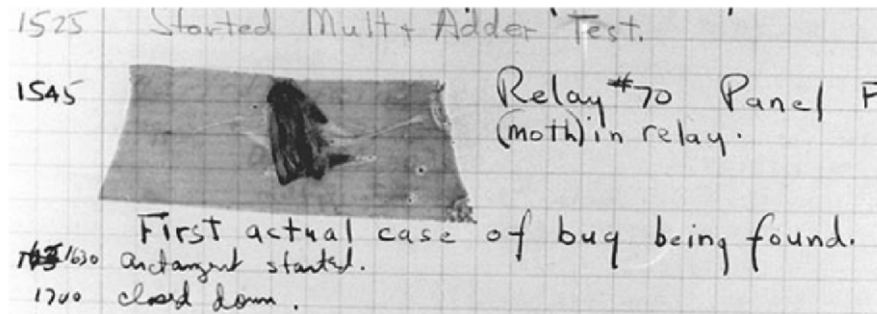 1525 Started Mult + Adder Test.
1545 Relay #70 Panel F
(moth) in relay.
First actual case of bug being found.
1630 arctangent started.
1700 closed down.